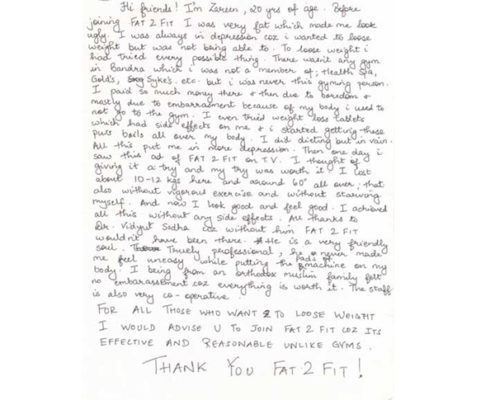 Hi friends! I'm Zareen, 20 yrs of age. Before
joining FAT 2 FIT I was very fat which made me look
ugly. I was always in depression coz i wanted to loose
weight but was not being able to. To loose weight i
had tried every possible thing. There wasn't any gym
in Bandra which i was not a member of; Health Spa,
Gold's, Syke's. etc. but i was never this gyming person.
I paid so much money there & then due to boredom &
mostly due to embarrasment because of my body i used to
not go to the gym. I even tried weight loss tablets
which had side effects on me & i started getting these
puss boils all over my body. I did dieting but in vain.
All this put me in more depression. Then one day i
saw this ad of FAT 2 FIT on T.V. I thought of
giving it a try and my try was worth it. I lost
about 10-12 kgs here and around 60" all over; that
also without vigorous exercise and without starving
myself. And now I look good and feel good. I achieved
all this without any side effects. All thanks to
Dr. Vidyut Sodha coz without him FAT 2 FIT
wouldn't have been there. He is a very friendly
soul. Truely professional; he never made
me feel uneasy while putting the pads of machine on my
body. I being from an orthodox muslim family felt
no embarassment coz everything is worth it. The staff
is also very co-operative.
FOR ALL THOSE WHO WANT 2 TO LOOSE WEIGHT
I WOULD ADVISE U TO JOIN FAT 2 FIT COZ ITS
EFFECTIVE AND REASONABLE UNLIKE GYMS.
THANK YOU FAT 2 FIT!